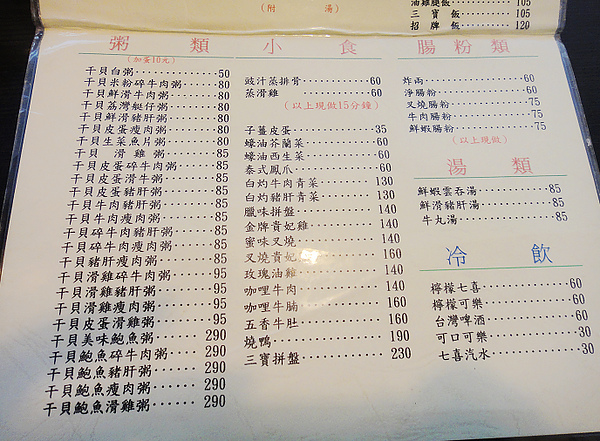 (附 湯)
油雞腿飯 105
三寶飯 105
招牌飯 120
粥類
(加蛋10元)
干貝白粥 50
干貝米粉碎牛肉粥 80
干貝鮮滑牛肉粥 80
干貝荔灣艇仔粥 80
干貝鮮滑豬肝粥 80
干貝皮蛋瘦肉粥 80
干貝生菜魚片粥 80
干貝滑雞粥 85
干貝皮蛋碎牛肉粥 85
干貝皮蛋滑牛粥 85
干貝皮蛋豬肝粥 85
干貝牛肉豬肝粥 85
干貝牛肉瘦肉粥 85
干貝碎牛肉豬肝粥 85
干貝碎牛肉瘦肉粥 85
干貝豬肝瘦肉粥 85
干貝滑雞碎牛肉粥 95
干貝滑雞豬肝粥 95
干貝滑雞瘦肉粥 95
干貝皮蛋滑雞粥 95
干貝美味鮑魚粥 290
干貝鮑魚碎牛肉粥 290
干貝鮑魚豬肝粥 290
干貝鮑魚瘦肉粥 290
干貝鮑魚滑雞粥 290
小食
豉汁蒸排骨 60
蒸滑雞 60
(以上現做15分鐘)
子薑皮蛋 35
蠔油芥蘭菜 60
蠔油西生菜 60
泰式鳳爪 60
白灼牛肉青菜 130
白灼豬肝青菜 130
臘味拼盤 140
金牌貴妃雞 140
蜜味叉燒 140
叉燒貴妃 160
玫瑰油雞 140
咖哩牛肉 140
咖哩牛腩 160
五香牛肚 160
燒鴨 190
三寶拼盤 230
腸粉類
炸兩 60
淨腸粉 60
叉燒腸粉 75
牛肉腸粉 75
鮮蝦腸粉 75
(以上現做)
湯類
鮮蝦雲吞湯 85
鮮滑豬肝湯 85
牛丸湯 85
冷飲
檸檬七喜 60
檸檬可樂 60
台灣啤酒 60
可口可樂 30
七喜汽水 30